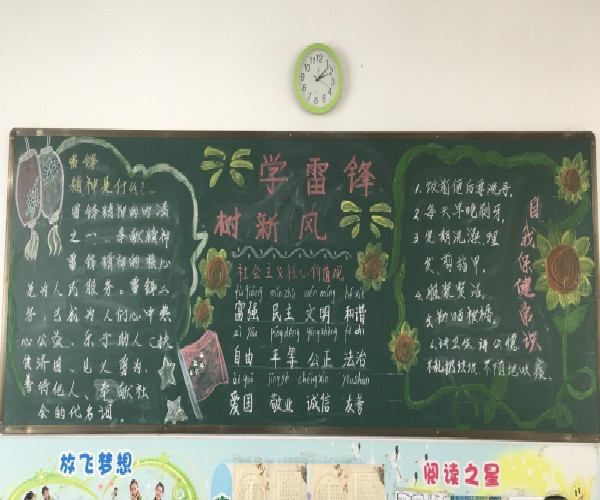 雷锋
精神是什么?
雷锋精神的内涵
之一、奉献精神
雷锋精神的核心
是为人民服务。雷锋二
字,已成为人们心中热
心公益、乐于助人、扶
贫济困、见义勇为、
善待他人、奉献社
会的代名词。
学雷锋
树新风
社会主义核心价值观
fù qiáng mín zhǔ wén míng hé xié
富强 民主 文明 和谐
zì yóu píng děng gōng zhèng fǎ zhì
自由 平等 公正 法治
ài guó jìng yè chéng xìn yǒu shàn
爱国 敬业 诚信 友善
自我保健常识
1.饭前便后要洗手,
2.每天早晚刷牙,
3.定期洗澡、理
发、剪指甲,
4.服装整洁,
5.勤晒被褥,
6.讲卫生,讲公德,
不乱扔垃圾,不随地吐痰。
放飞梦想
阅读之星